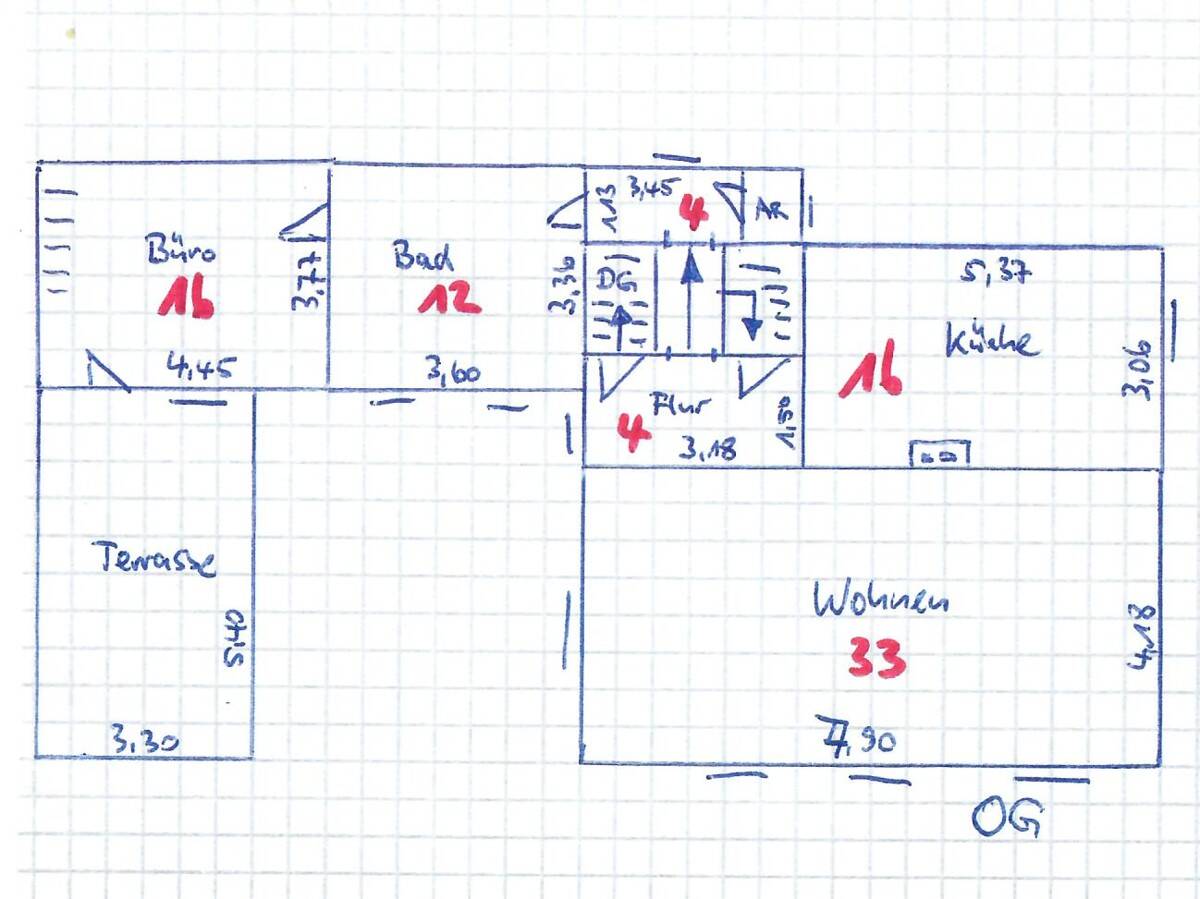 3,45
1,13
4
AR
Büro
16
3,77
4,45
Bad
12
3,36
3,60
DG
5,37
Küche
16
3,06
Flur
4
1,50
3,18
Terrasse
5,40
3,30
Wohnen
33
4,18
7,90
OG